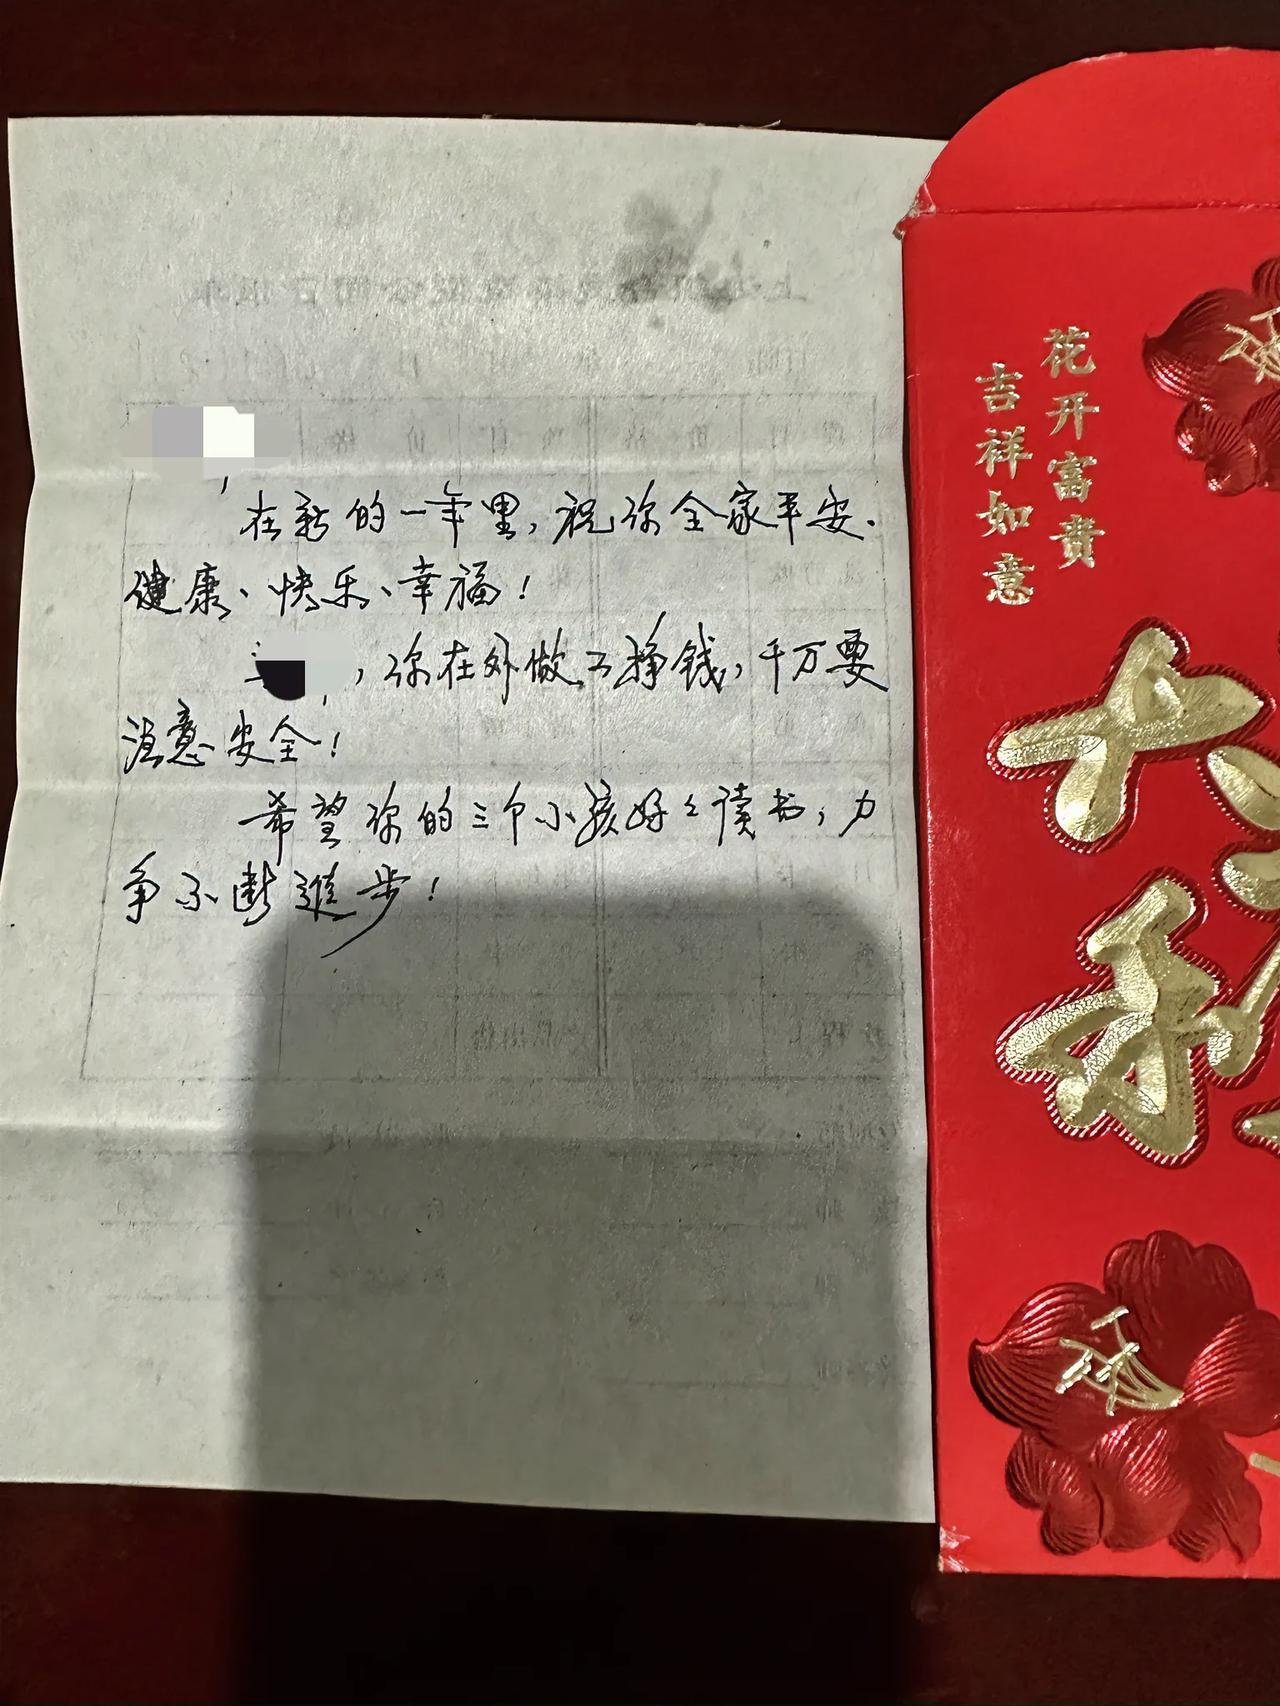 在新的一年里，祝你全家平安、
健康、快乐、幸福！
，你在外做工挣钱，千万要
注意安全！
希望你的三个小孩好々读书，力
争不断進步！
花开富贵
吉祥如意
大
利